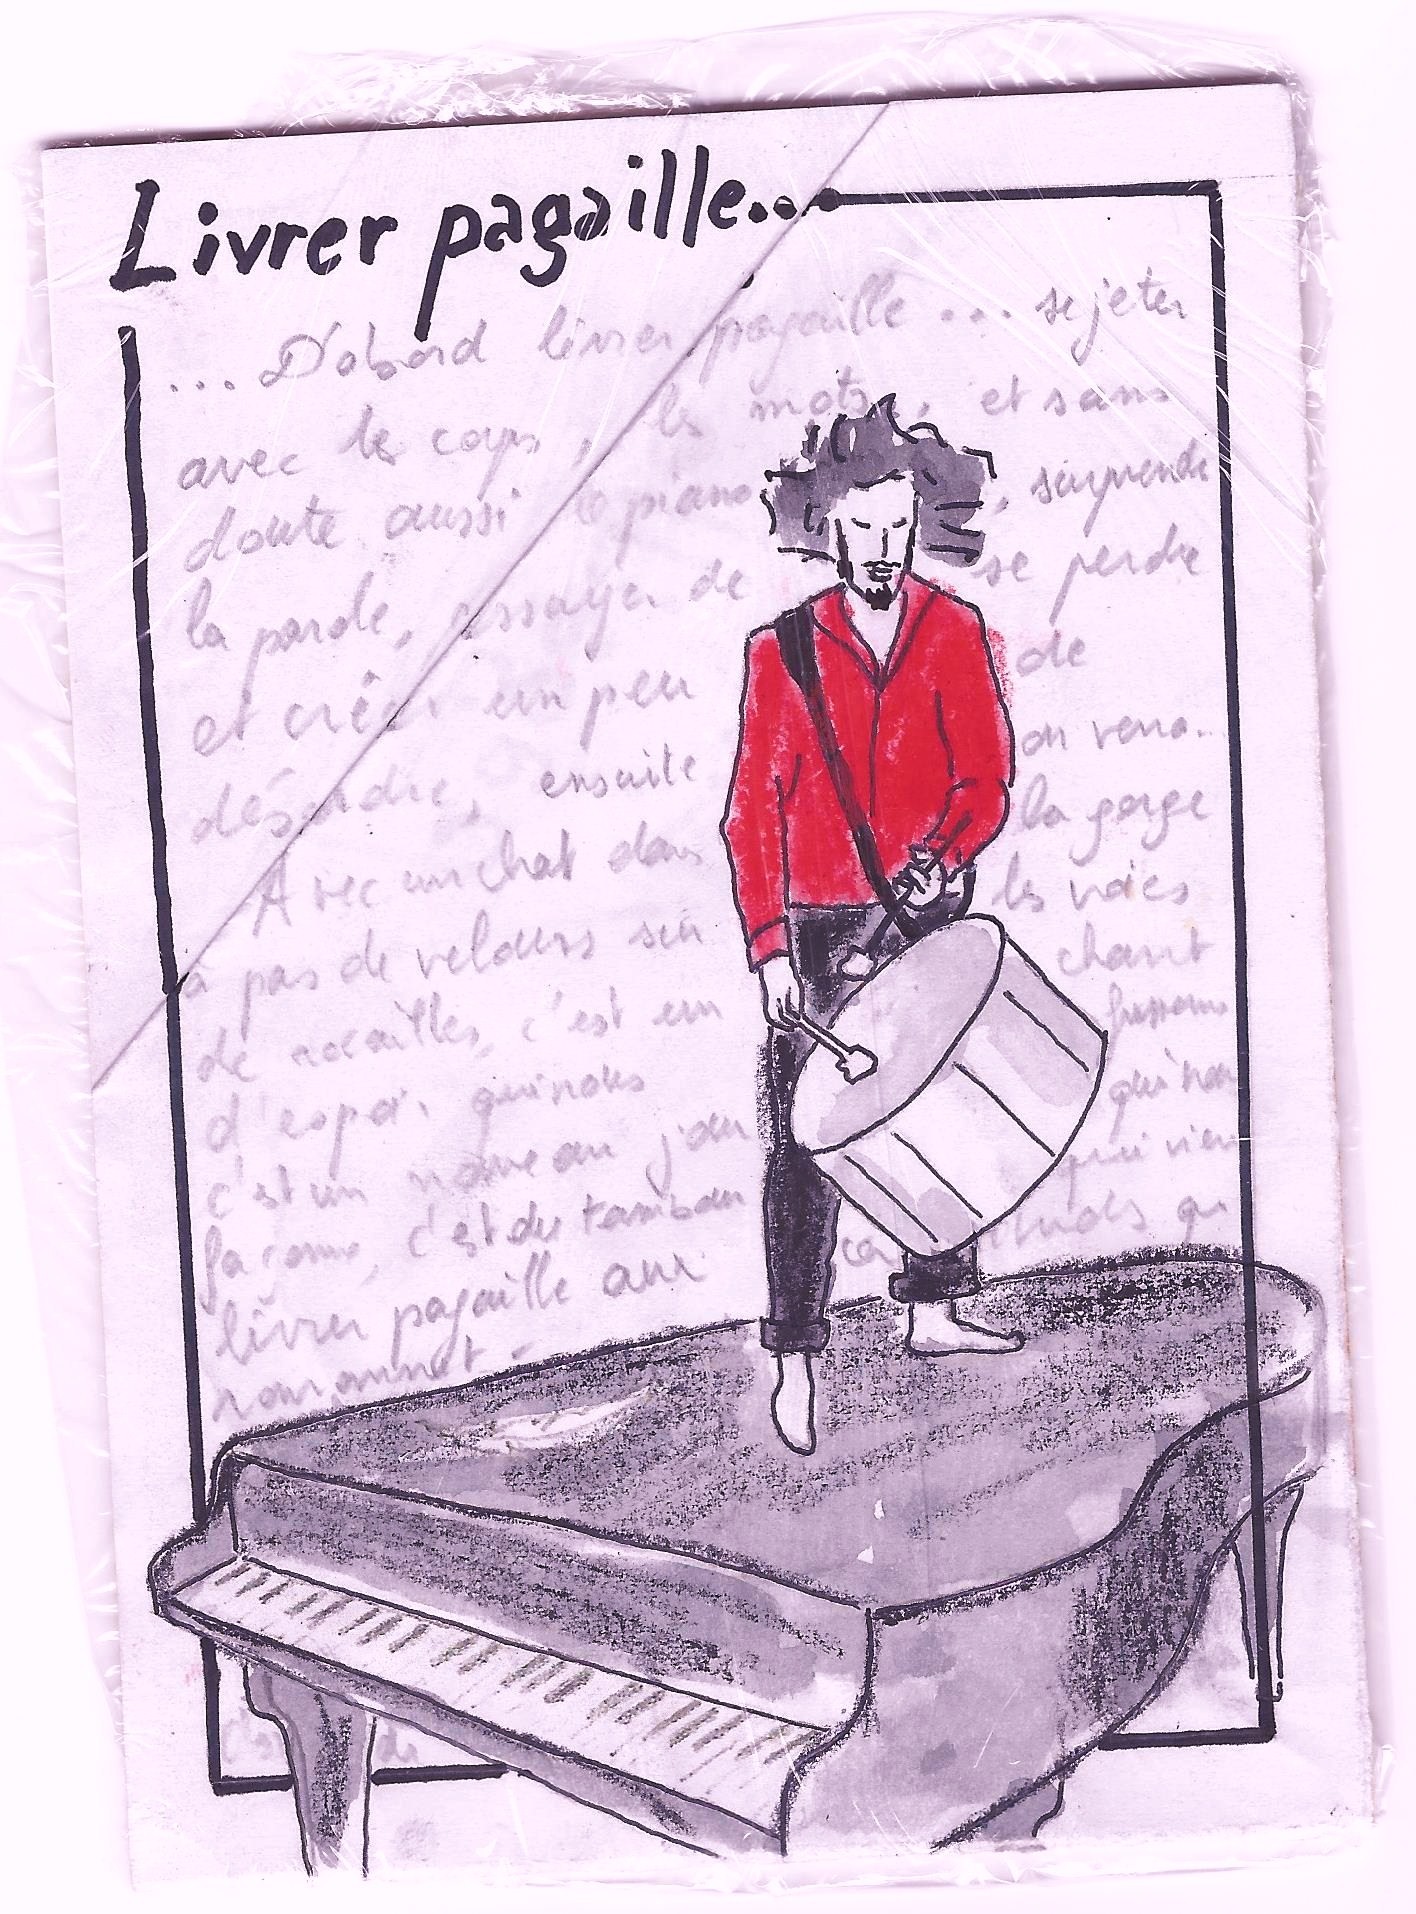 Livrer pagaille...
... D'abord livrer pagaille ... se jeter
avec le corps, les mots, et sans
doute aussi le piano, surprendre
la parole, essayer de se perdre
et créer un peu de
désordre, ensuite on verra..
Avec un chat dans la gorge
à pas de velours sur les voies
de rocailles, c'est un chant
d'espoir qui nous
c'est un nouveau jour qui nous
façonne, c'est du tambour qui vient
livrer pagaille aux qui